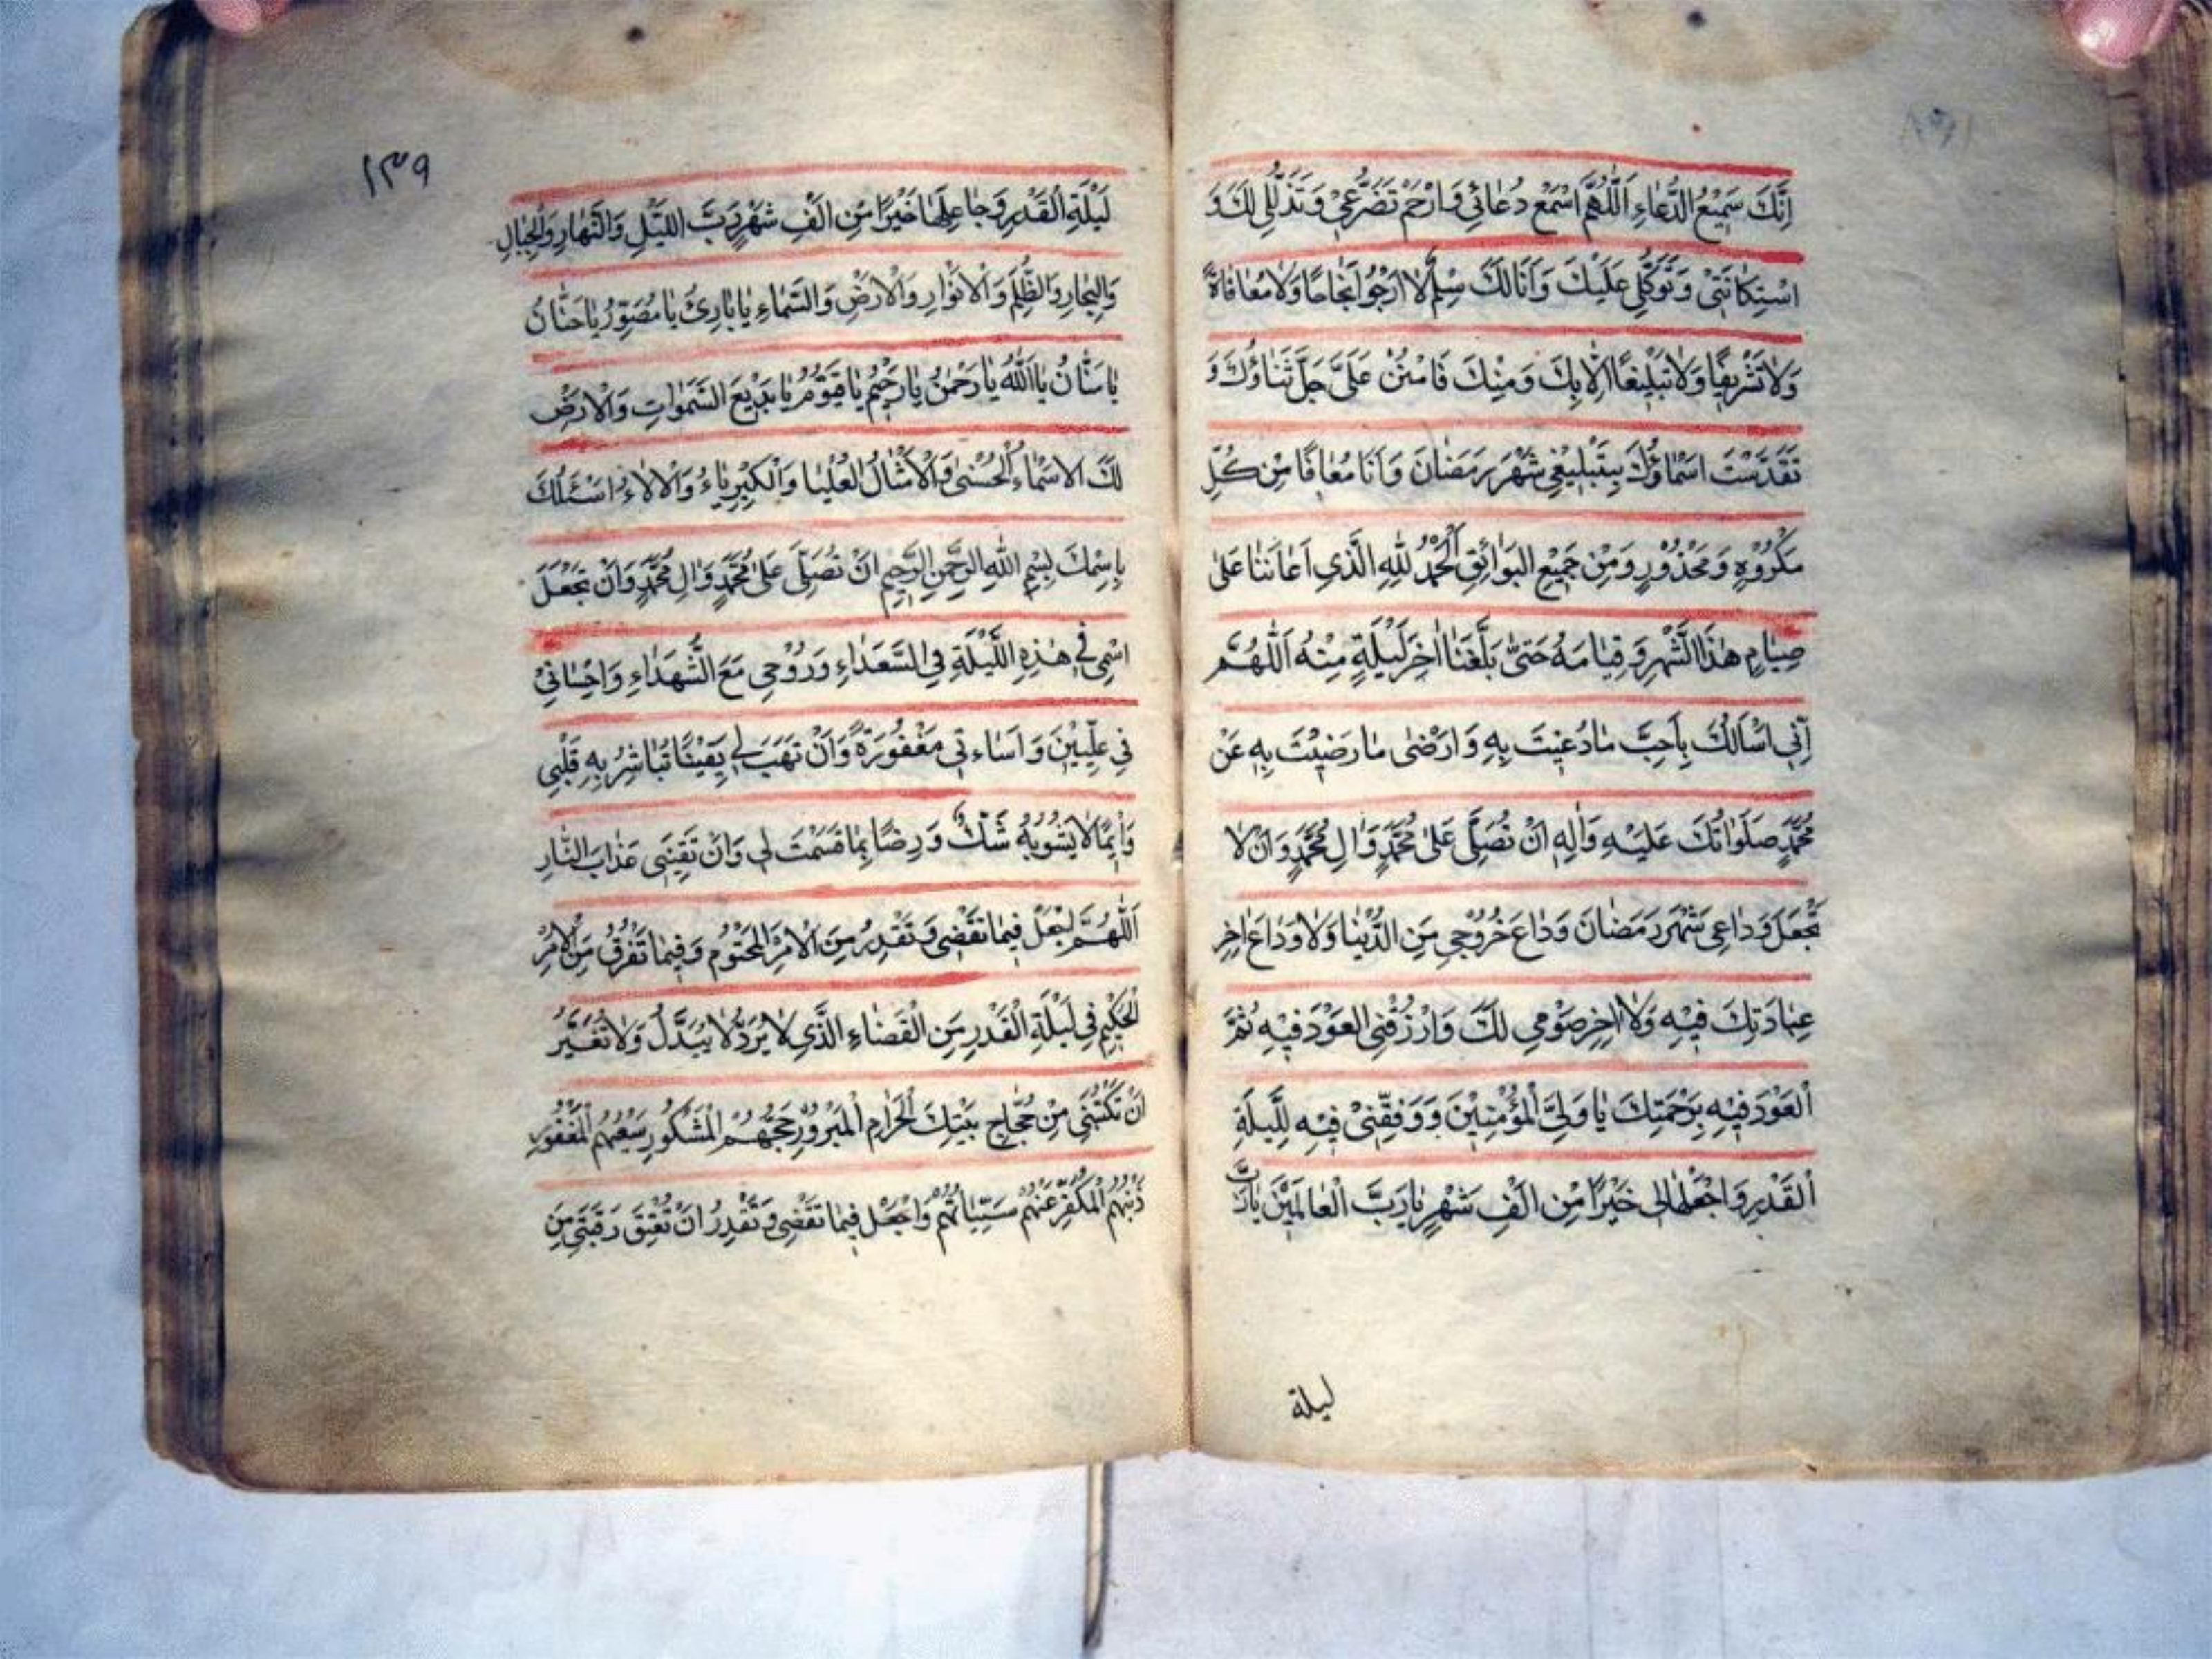 اِنَّكَ سَمِيْعُ الدُّعَاءِ اَللّٰهُمَّ اسْمَعْ دُعَائِي وَارْحَمْ تَضَرُّعِيْ وَتَذَلُّلِي لَكَ وَ
اسْتِكَانَتِيْ وَتَوَكُّلِي عَلَيْكَ وَاَنَا لَكَ سِلْمٌ لَا اَرْجُوا نَجَاحًا وَلَا مُعَافَاةً
وَلَا تَشْرِيفًا وَلَا تَبْلِيْغًا اِلَّا بِكَ وَمِنْكَ فَامْنُنْ عَلَيَّ جَلَّ ثَنَاؤُكَ وَ
تَقَدَّسَتْ اَسْمَاؤُكَ بِتَبْلِيغِي شَهْرَ رَمَضَانَ وَاَنَا مُعَافًا مِنْ كُلِّ
مَكْرُوْهٍ وَمَحْذُوْرٍ وَمِنْ جَمِيْعِ البَوَائِقِ اَلْحَمْدُ لِلّٰهِ الَّذِي اَعَانَنَا عَلٰى
صِيَامِ هٰذَا الشَّهْرِ وَقِيَامِهِ حَتّٰى بَلَّغَنَا اٰخِرَ لَيْلَةٍ مِنْهُ اَللّٰهُمَّ
اِنِّي اَسْاَلُكَ بِاَحَبِّ مَا دُعِيْتَ بِهِ وَاَرْضٰى مَا رَضِيْتَ بِهِ عَنْ
مُحَمَّدٍ صَلَوَاتُكَ عَلَيْهِ وَاٰلِهِ اَنْ تُصَلِّيَ عَلٰى مُحَمَّدٍ وَاٰلِ مُحَمَّدٍ وَاَنْ لَا
تَجْعَلَ وَدَاعِي شَهْرَ رَمَضَانَ وَدَاعَ خُرُوْجِي مِنَ الدُّنْيَا وَلَا وَدَاعَ اٰخِرِ
عِبَادَتِكَ فِيْهِ وَلَا اٰخِرَ صَوْمِي لَكَ وَارْزُقْنِي العَوْدَ فِيْهِ ثُمَّ
اَلعَوْدَ فِيْهِ بِرَحْمَتِكَ يَا وَلِيَّ الْمُؤْمِنِيْنَ وَوَفِّقْنِيْ فِيْهِ لِلَّيْلَةِ
اَلقَدْرِ وَاجْعَلْهَا لِي خَيْرًا مِنْ اَلْفِ شَهْرٍ يَا رَبَّ الْعَالَمِيْنَ يَا رَبَّ
ليلة
١٣٩
لَيْلَةِ القَدْرِ وَجَاعِلَهَا خَيْرًا مِنْ اَلْفِ شَهْرٍ رَبَّ اللَّيْلِ وَالنَّهَارِ وَالْجِبَالِ
وَالبِحَارِ وَالظُّلَمِ وَالْاَنْوَارِ وَالْاَرْضِ وَالسَّمَاءِ يَا بَارِئُ يَا مُصَوِّرُ يَا حَنَّانُ
يَا مَنَّانُ يَا اَللّٰهُ يَا رَحْمٰنُ يَا رَحِيْمُ يَا قَيُّوْمُ يَا بَدِيْعَ السَّمٰوَاتِ وَالْاَرْضِ
لَكَ الاَسْمَاءُ الْحُسْنٰى وَالْاَمْثَالُ الْعُلْيَا وَالْكِبْرِيَاءُ وَالْاٰلَاءُ اَسْئَلُكَ
بِاسْمِكَ بِسْمِ اللهِ الرَّحْمٰنِ الرَّحِيْمِ اَنْ تُصَلِّيَ عَلٰى مُحَمَّدٍ وَاٰلِ مُحَمَّدٍ وَاَنْ تَجْعَلَ
اسْمِي فِي هٰذِهِ اللَّيْلَةِ فِي السُّعَدَاءِ وَرُوْحِي مَعَ الشُّهَدَاءِ وَاِحْسَانِيْ
فِي عِلِّيِّيْنَ وَاِسَاءَتِي مَغْفُوْرَةً وَاَنْ تَهَبَ لِي يَقِيْنًا تُبَاشِرُ بِهِ قَلْبِي
وَاِيْمَانًا لَا يَشُوْبُهُ شَكٌّ وَرِضًا بِمَا قَسَمْتَ لِي وَاَنْ تَقِيَنِي عَذَابَ النَّارِ
اَللّٰهُمَّ اجْعَلْ فِيمَا تَقْضِي وَتَقْدِرُ مِنَ الْاَمْرِ الْمَحْتُوْمِ وَفِيْمَا تَفْرُقُ مِنَ الْاَمْرِ
الْحَكِيْمِ فِي لَيْلَةِ الْقَدْرِ مِنَ الْقَضَاءِ الَّذِي لَا يُرَدُّ لَا يُبَدَّلُ وَلَا تُغَيَّرُ
اَنْ تَكْتُبَنِي مِنْ حُجَّاجِ بَيْتِكَ الْحَرَامِ الْمَبْرُوْرِ حَجُّهُمْ الْمَشْكُوْرِ سَعْيُهُمْ الْمَغْفُوْرِ
ذَنْبُهُمْ الْمُكَفَّرِ عَنْهُمْ سَيِّئَاتُهُمْ وَاجْعَلْ فِيْمَا تَقْضِي وَتَقْدِرُ اَنْ تُعْتِقَ رَقَبَتِي مِنَ